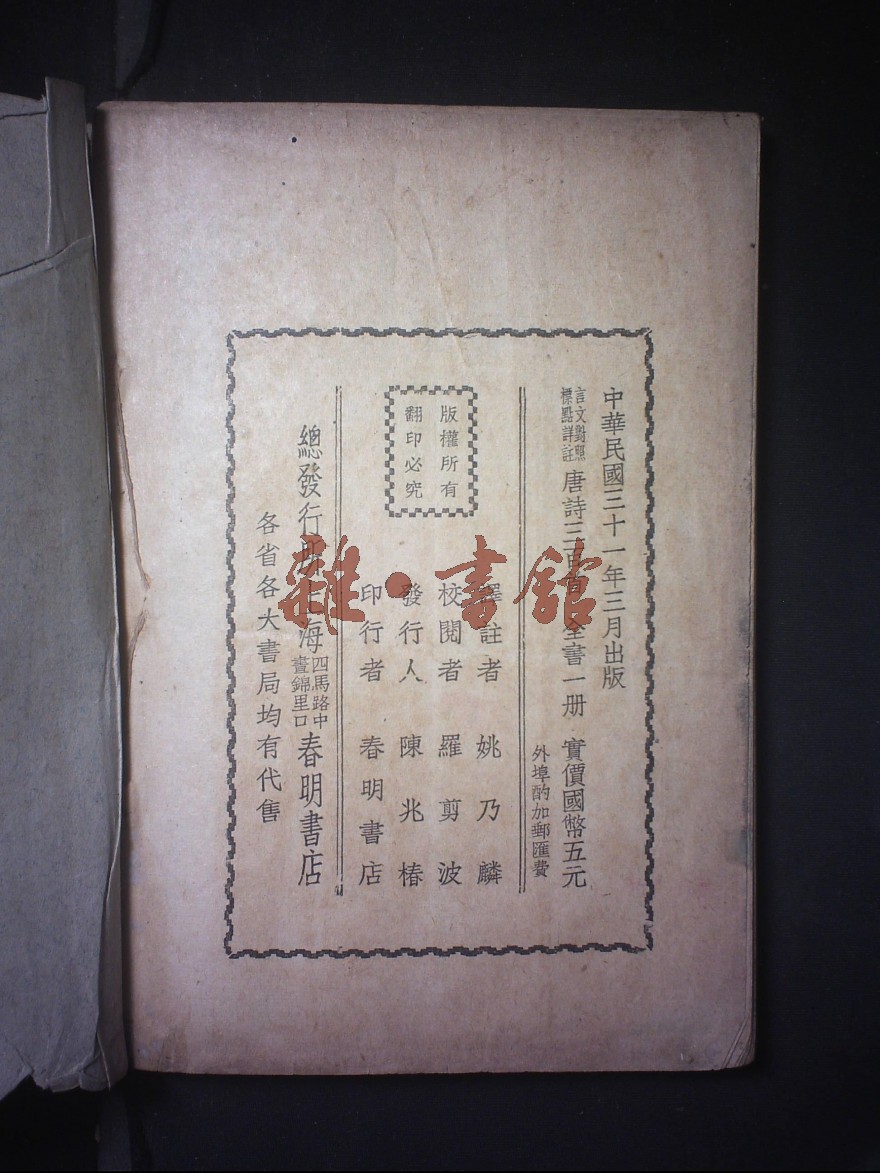 中華民國三十一年三月出版
言文對照
標點詳註
唐詩三百首 全書一册 實價國幣五元
外埠酌加郵匯費
版權所有
翻印必究
譯註者 姚乃麟
校閱者 羅剪波
發行人 陳兆椿
印行者 春明書店
總發行所上海
四馬路中
晝錦里口
春明書店
各省各大書局均有代售
雜·書館